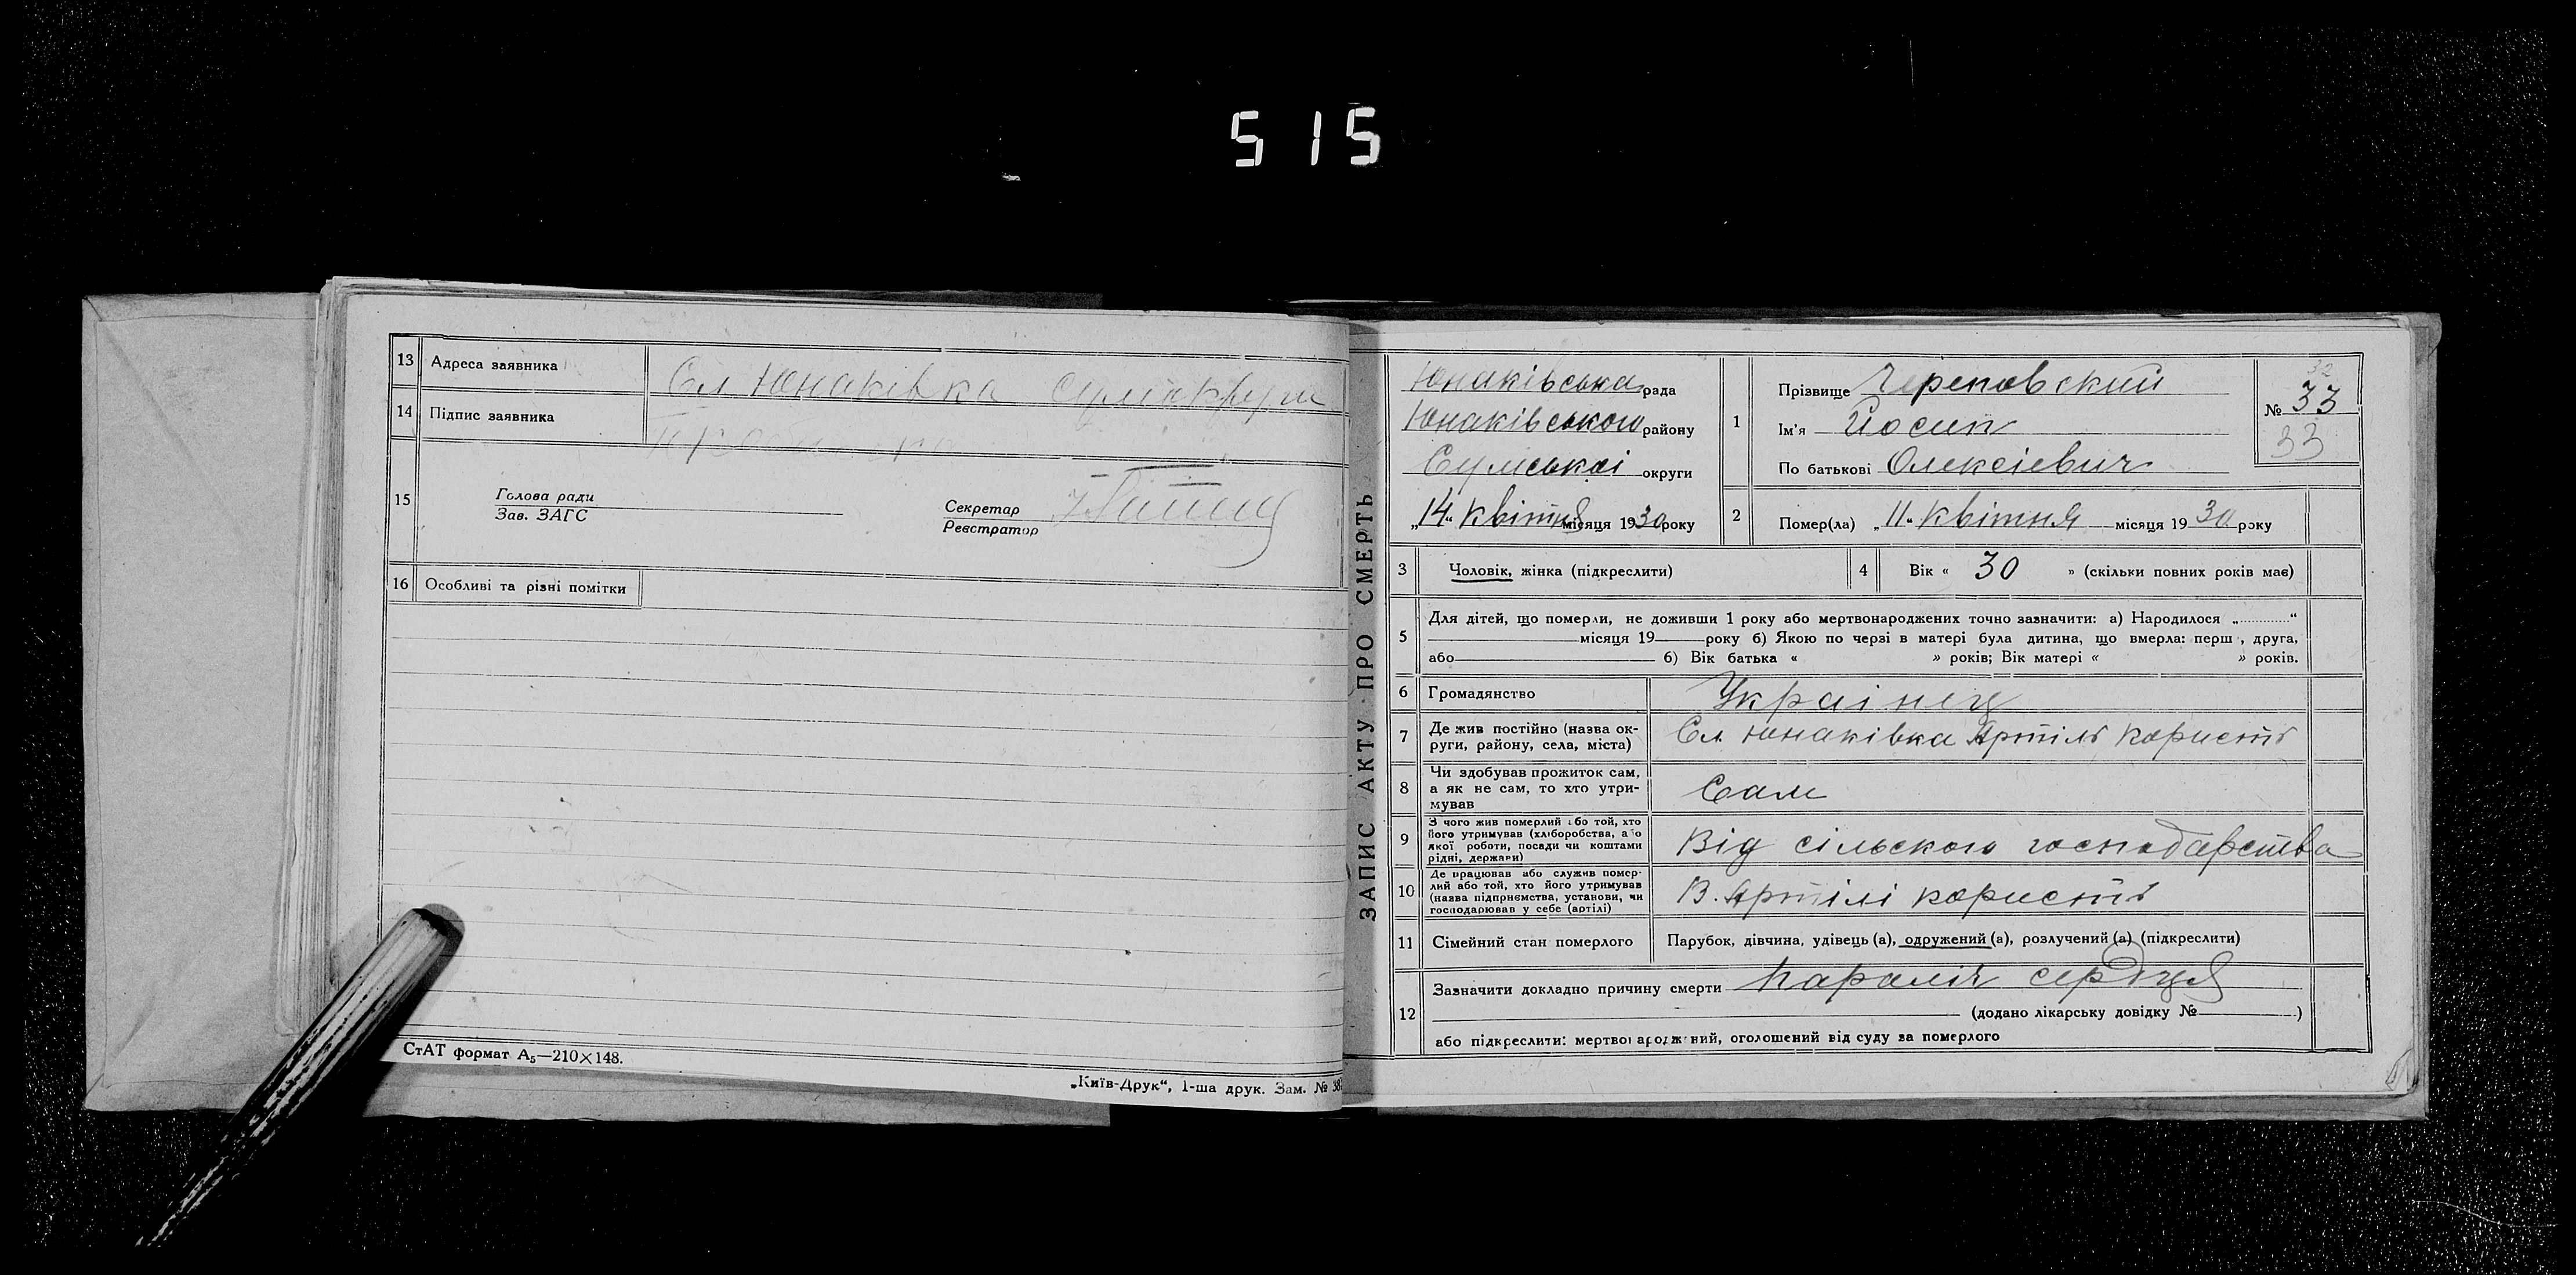 515
13 Адреса заявника Сл Юнаківка Сум. округи
14 Підпис заявника
15 Голова ради
Зав. ЗАГС
Секретар
Реєстратор
16 Особливі та різні помітки
СтАТ формат А₅—210×148.
„Київ-Друк“, 1-ша друк. Зам. № 38
ЗАПИС АКТУ ПРО СМЕРТЬ
Юнаківська рада
Юнаківського району
Сумської округи
„14“ Квітня місяця 1930 року
1 Прізвище Череповський
Ім'я Йосип
По батькові Олексієвич
32
№ 33
33
2 Помер(ла) „11“ Квітня місяця 1930 року
3 Чоловік, жінка (підкреслити)
4 Вік « 30 » (скільки повних років має)
5 Для дітей, що померли, не доживши 1 року або мертвонароджених точно зазначити: а) Народилося „ “
місяця 19 року б) Якою по черзі в матері була дитина, що вмерла: перш , друга,
або б) Вік батька « » років; Вік матері « » років.
6 Громадянство Українец
7 Де жив постійно (назва ок-
руги, району, села, міста) Сл. Юнаківка Артіль Користь
8 Чи здобував прожиток сам,
а як не сам, то хто утри-
мував Сам
9 З чого жив померлий або той, хто
його утримував (хліборобства, або
якої роботи, посади чи коштами
рідні, держави) Від сільского господарства
10 Де працював або служив помер-
лий або той, хто його утримував
(назва підприємства, установи, чи
господарював у себе (артілі) В. Артілі користь
11 Сімейний стан померлого Парубок, дівчина, удівець (а), одружений (а), розлучений (а) (підкреслити)
12 Зазначити докладно причину смерти параліч сердця
(додано лікарську довідку № )
або підкреслити: мертвонароджений, оголошений від суду за померлого